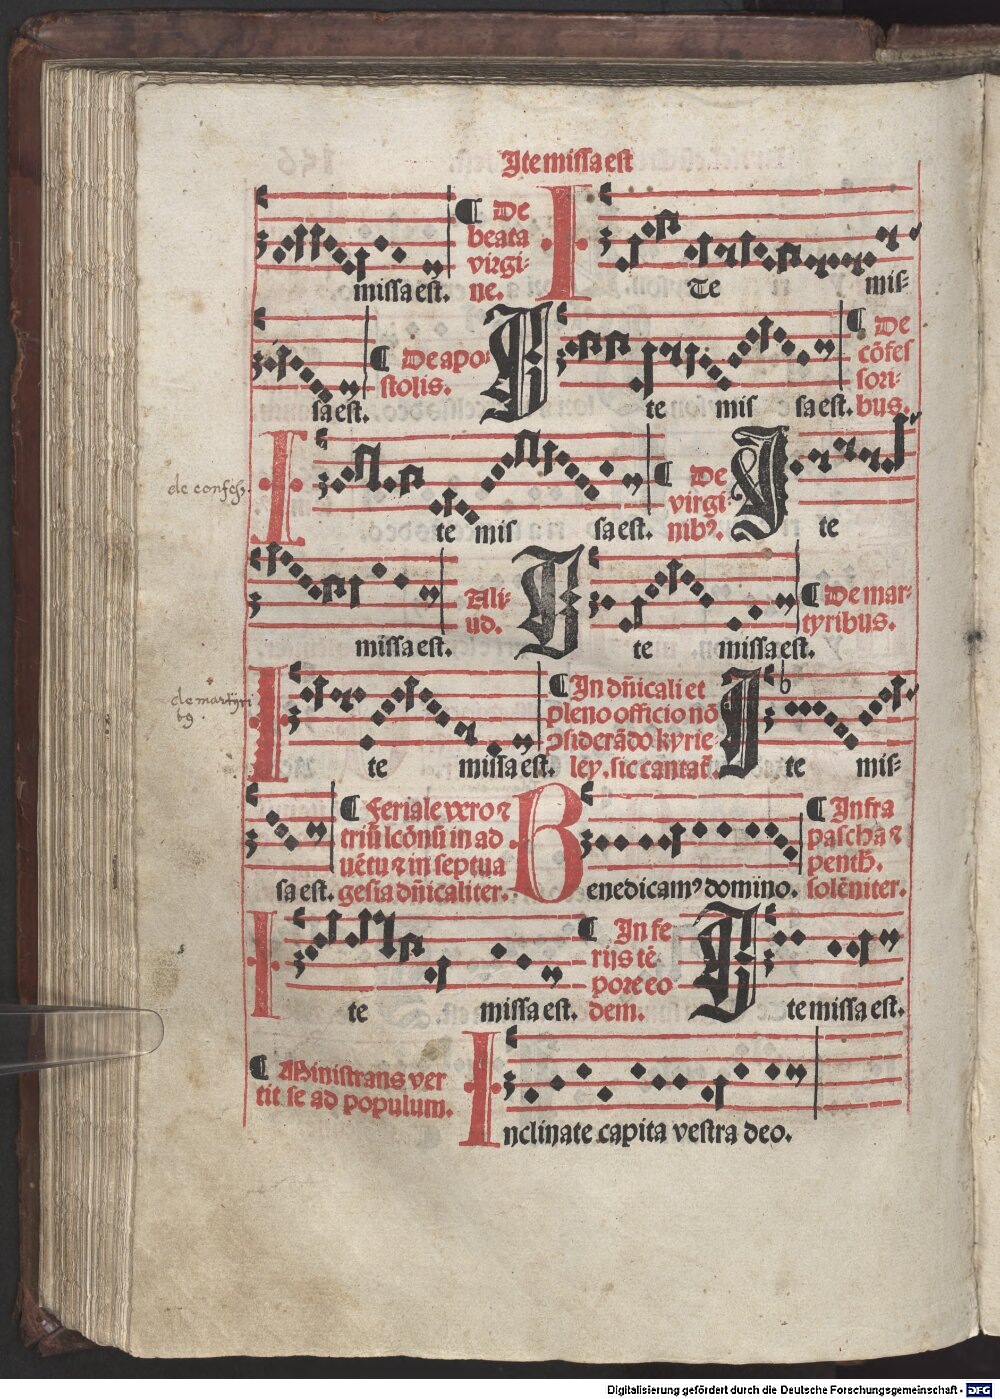 Ite missa est
missa est. ¶ De beata virgi⸗ ne. I Te mis⸗
sa est. ¶ De apo⸗ stolis. I te mis sa est. ¶ De cōfes sori⸗ bus.
de confess. I te mis sa est. ¶ De virgi⸗ nibꝰ. I te
missa est. Ali⸗ ud. I te missa est. ¶ De mar⸗ tyribus.
de martyri bꝰ. I te missa est. ¶ In dn̄icali et pleno officio nō ꝯsiderādo kyrie⸗ ley. sic cantat̄. I te mis⸗
sa est. ¶ Feriale vero ⁊ triū lcōnū in ad vētu ⁊ in septua gesia dn̄icaliter. B enedicamꝰ domino. ¶ Infra pascha ⁊ penth̄. solēniter.
I te missa est. ¶ In fe rijs tē⸗ pore eo dem. I te missa est.
¶ Ministrans ver tit se ad populum. I nclinate capita vestra deo.
Digitalisierung gefördert durch die Deutsche Forschungsgemeinschaft - DFG